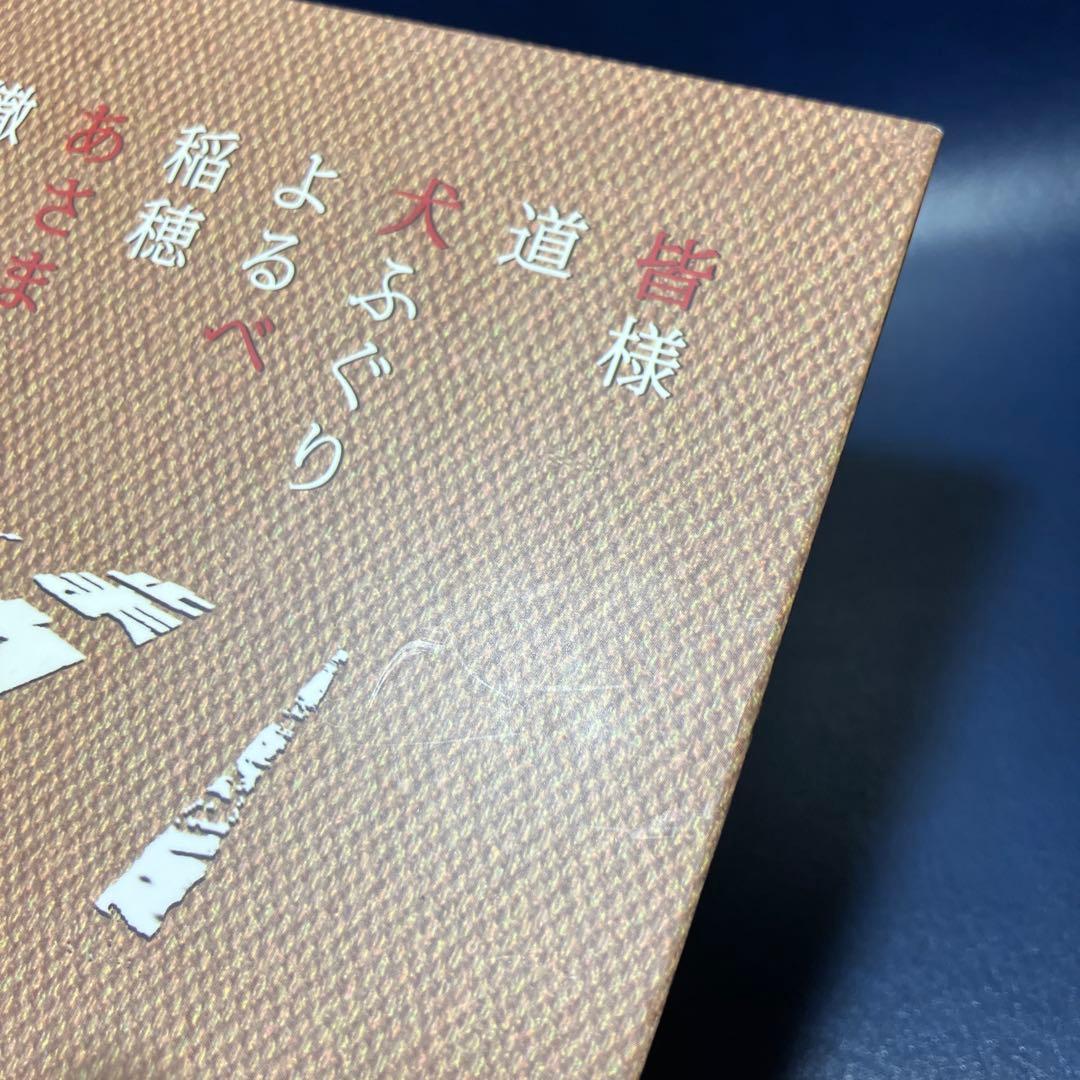 皆様
道
犬ふぐり
よるべ
稲穂
あさま
轍